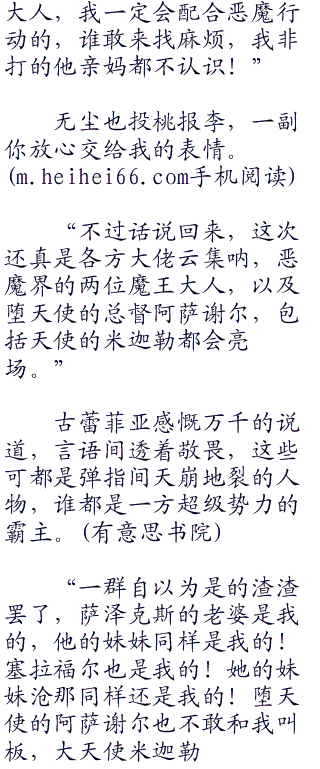 大人，我一定会配合恶魔行
动的，谁敢来找麻烦，我非
打的他亲妈都不认识！”
无尘也投桃报李，一副
你放心交给我的表情。
(m.heihei66.com手机阅读)
“不过话说回来，这次
还真是各方大佬云集呐，恶
魔界的两位魔王大人，以及
堕天使的总督阿萨谢尔，包
括天使的米迦勒都会亮
场。”
古蕾菲亚感慨万千的说
道，言语间透着敬畏，这些
可都是弹指间天崩地裂的人
物，谁都是一方超级势力的
霸主。(有意思书院)
“一群自以为是的渣渣
罢了，萨泽克斯的老婆是我
的，他的妹妹同样是我的！
塞拉福尔也是我的！她的妹
妹沧那同样还是我的！堕天
使的阿萨谢尔也不敢和我叫
板，大天使米迦勒